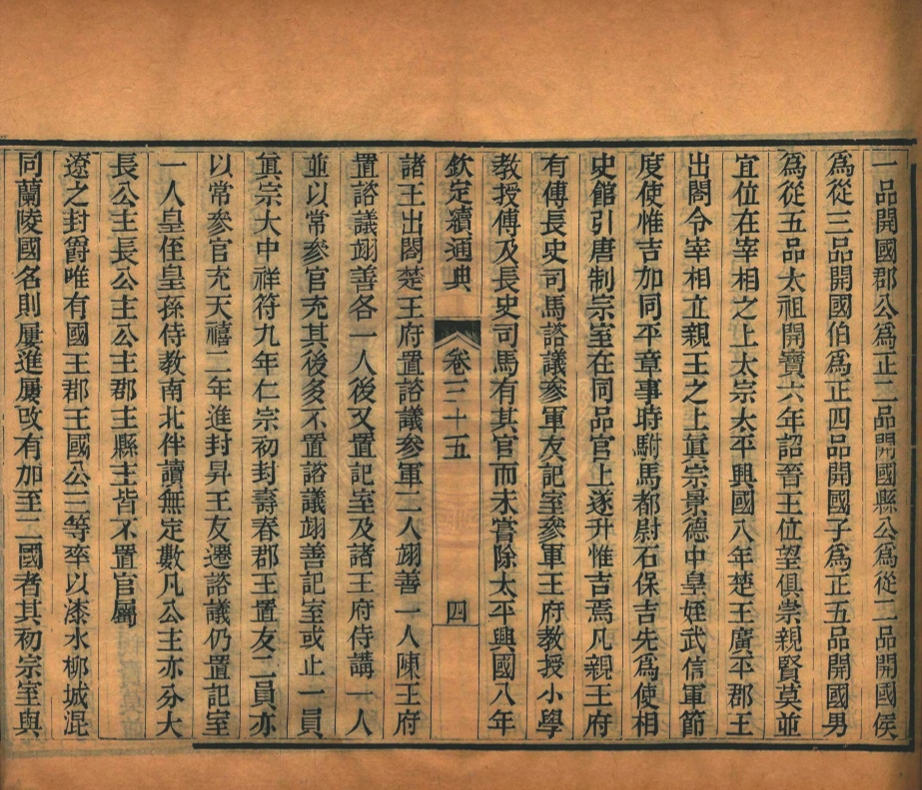 一品開國郡公爲正二品開國縣公爲從二品開國侯
爲從三品開國伯爲正四品開國子爲正五品開國男
爲從五品太祖開寶六年詔晉王位望俱崇親賢莫並
宜位在宰相之上太宗太平興國八年楚王廣平郡王
出閤令宰相立親王之上眞宗景德中皇姪武信軍節
度使惟吉加同平章事時駙馬都尉石保吉先爲使相
史館引唐制宗室在同品官上遂升惟吉焉凡親王府
有傅長史司馬諮議參軍友記室參軍王府教授小學
教授傅及長史司馬有其官而未嘗除太平興國八年
欽定續通典 卷三十五 四
諸王出閤楚王府置諮議參軍二人翊善一人陳王府
置諮議翊善各一人後又置記室及諸王府侍講一人
並以常參官充其後多不置諮議翊善記室或止一員
眞宗大中祥符九年仁宗初封壽春郡王置友二員亦
以常參官充天禧二年進封昇王友遷諮議仍置記室
一人皇侄皇孫侍教南北伴讀無定數凡公主亦分大
長公主長公主公主郡主縣主皆不置官屬
遼之封爵唯有國王郡王國公三等率以漆水柳城混
同蘭陵國名則屢進屢改有加至二國者其初宗室與